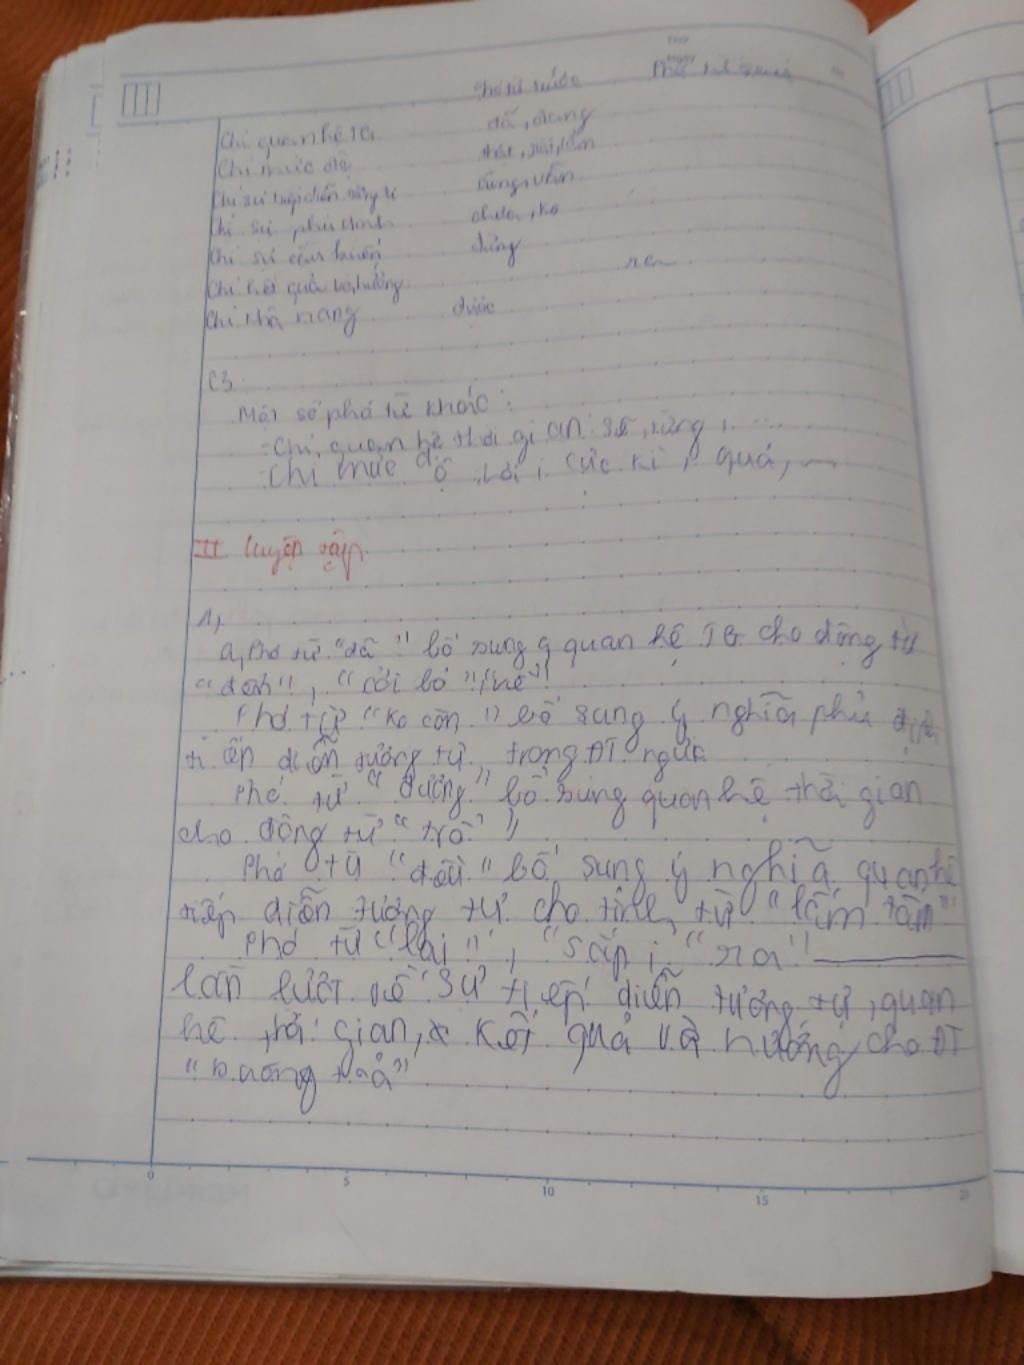 Thứ
Ngày
Phó từ trước Phó từ sau
Chỉ quan hệ TG đã, đang
Chỉ mức độ thật, rất, lắm
Chỉ sự tiếp diễn tương tự cũng, vẫn
Chỉ sự phủ định chưa, ko
Chỉ sự cầu khiến đừng
Chỉ kết quả và hướng ra
Chỉ khả năng được
C3
Một số phó từ khác:
- Chỉ quan hệ thời gian: sẽ, từng, ...
- Chỉ mức độ: cực kì, quá, ...
II Luyện tập
1,
a, Phó từ "đã" bổ sung quan hệ TG cho động từ
"đến", "cởi bỏ"
Phó từ "ko còn" bổ sung ý nghĩa phủ định
tiếp diễn tương tự trong ĐT ngửi
Phó từ "đương" bổ sung quan hệ thời gian
cho động từ "trổ"
Phó từ "đều" bổ sung ý nghĩa quan hệ
tiếp diễn tương tự cho tính từ "lấm tấm"
Phó từ "lại", "sắp", "ra"
lần lượt về sự tiếp diễn tương tự, quan
hệ thời gian, kết quả và hướng cho ĐT
"buông toả"
0 5 10 15 20